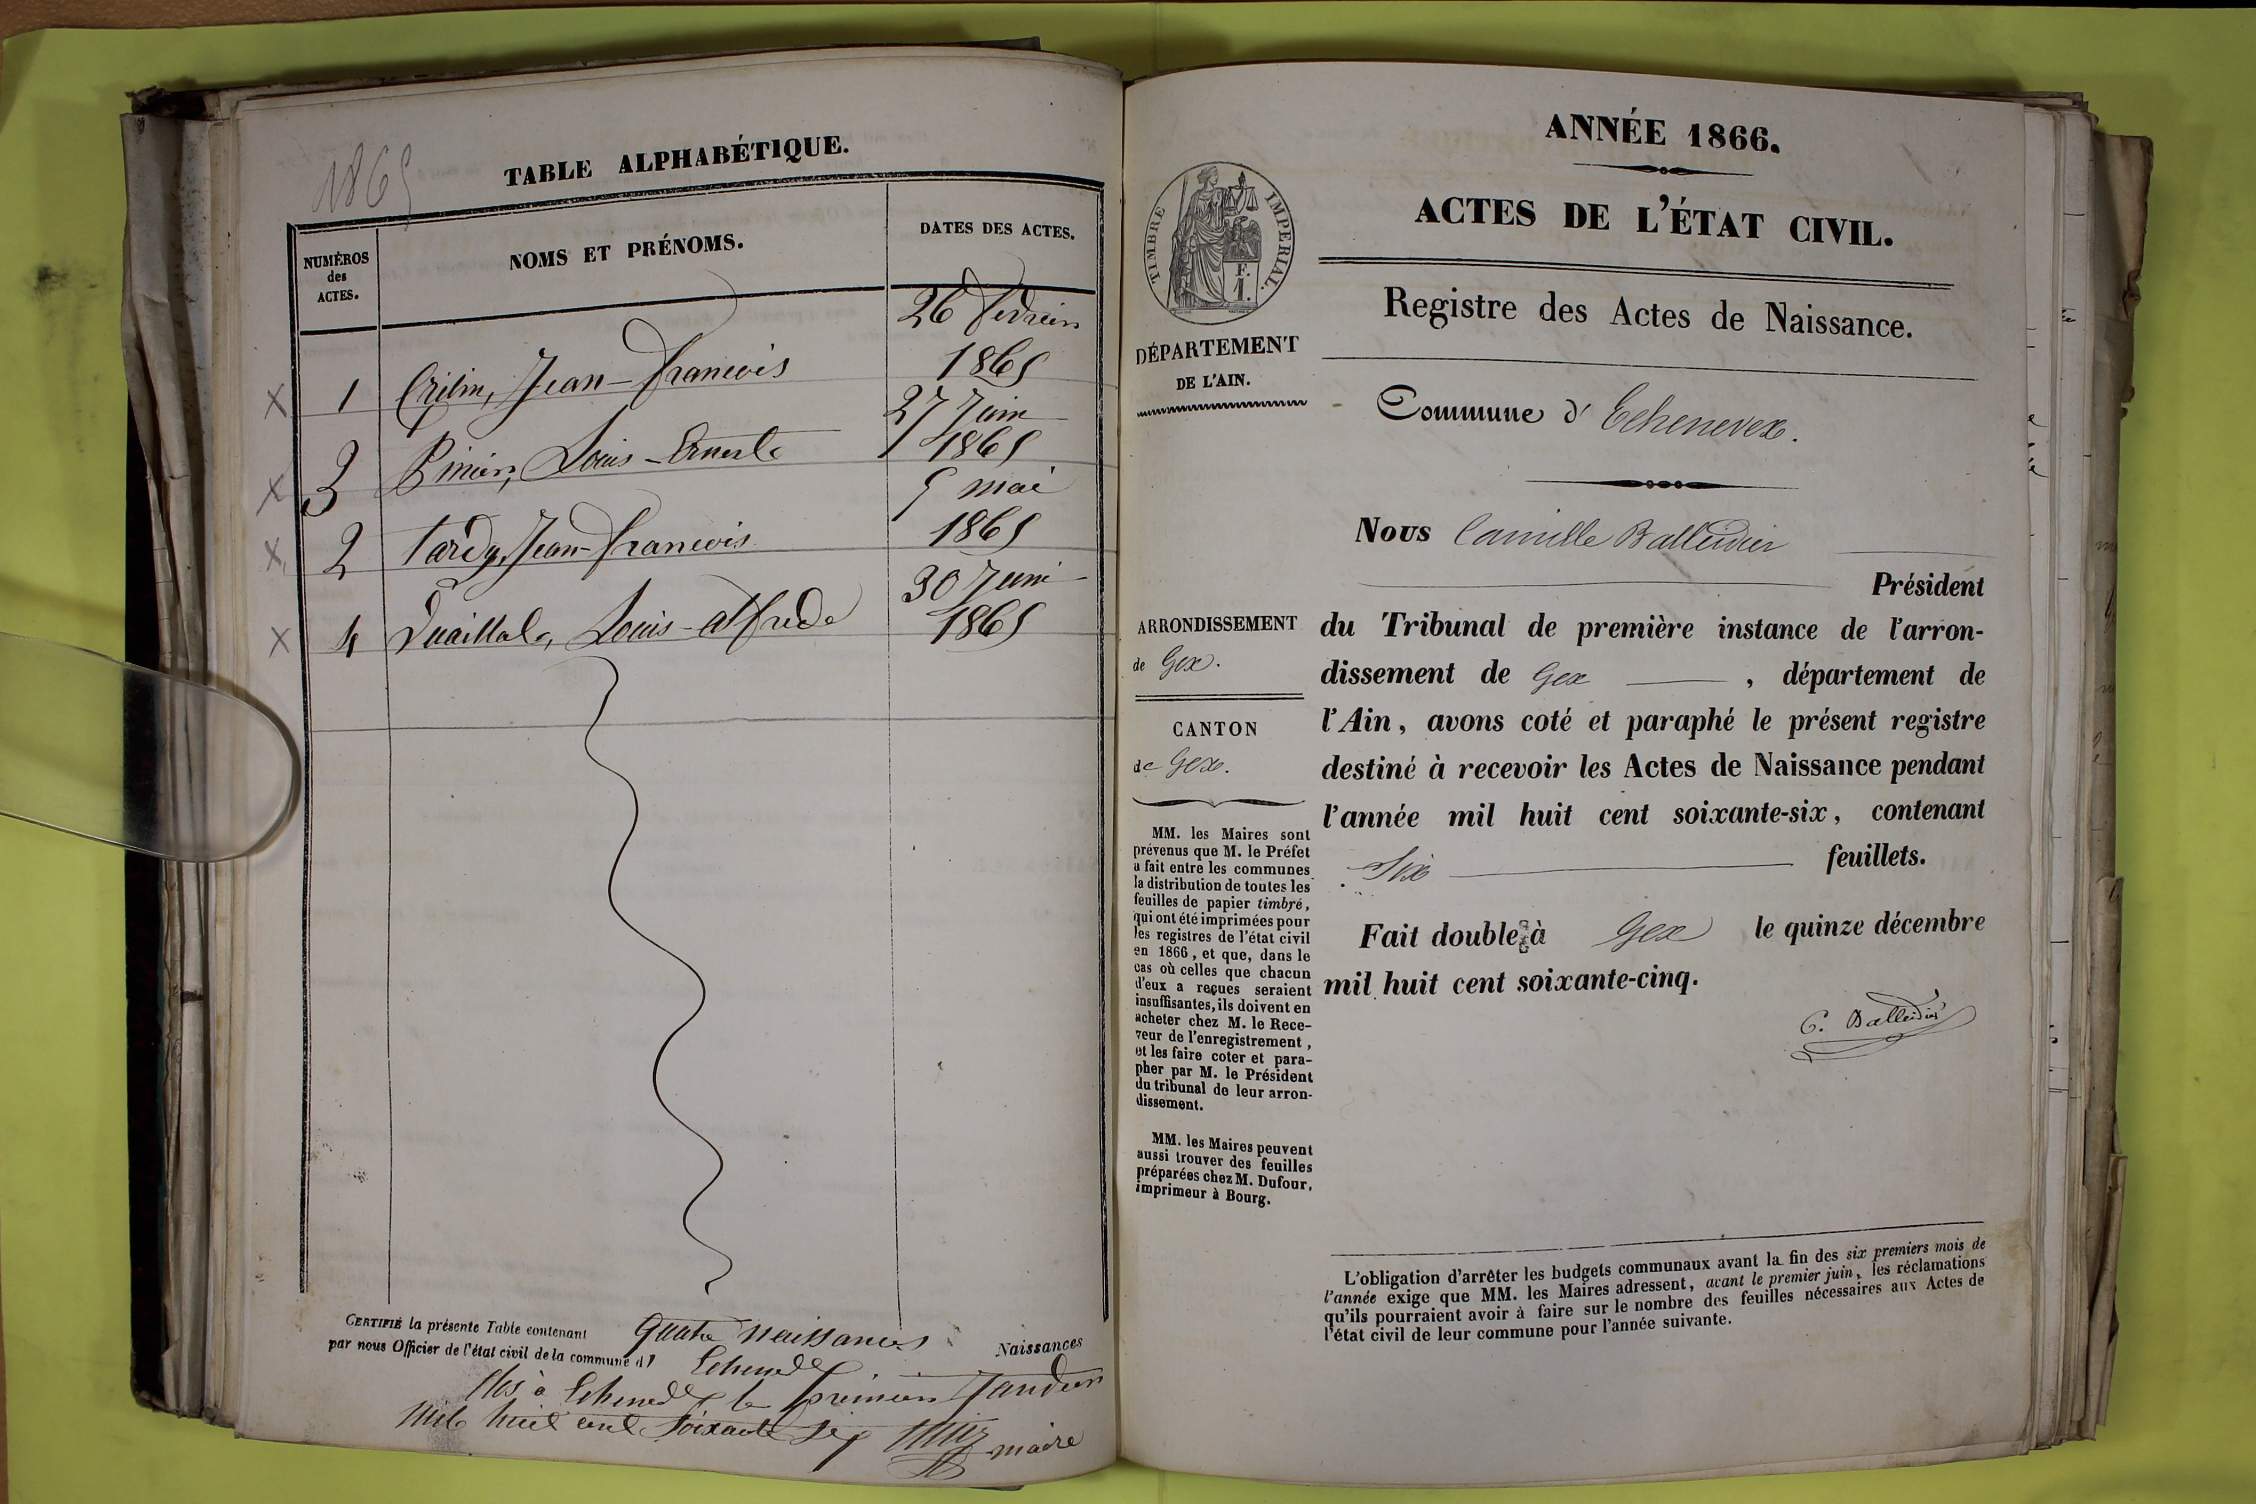 1865
TABLE ALPHABÉTIQUE.
NUMÉROS
des
ACTES.
NOMS ET PRÉNOMS.
DATES DES ACTES.
26 février
1865
x 1 Jean-francois
27 Juin
1865
x 3 Louis-Ernest
5 mai
1865
x 2 tardy, Jean-francois
30 Juin
1865
x 4 Louis-alfrede
CERTIFIÉ la présente Table contenant quatre naissances Naissances
par nous Officier de l'état civil de la commune d'
clos à le premier Janvier
mile huit cent soixante six maire
ANNÉE 1866.
ACTES DE L'ÉTAT CIVIL.
TIMBRE IMPÉRIAL.
F.
1.
Registre des Actes de Naissance.
DÉPARTEMENT
DE L'AIN.
Commune d' Echenevex.
Nous Camille Balleidier
Président
ARRONDISSEMENT
de Gex.
CANTON
de Gex.
du Tribunal de première instance de l'arron-
dissement de Gex , département de
l'Ain, avons coté et paraphé le présent registre
destiné à recevoir les Actes de Naissance pendant
l'année mil huit cent soixante-six, contenant
Six feuillets.
Fait double à Gex le quinze décembre
mil huit cent soixante-cinq.
C. Balleidier
MM. les Maires sont
prévenus que M. le Préfet
a fait entre les communes
la distribution de toutes les
feuilles de papier timbré,
qui ont été imprimées pour
les registres de l'état civil
en 1866, et que, dans le
cas où celles que chacun
d'eux a reçues seraient
insuffisantes, ils doivent en
acheter chez M. le Rece-
veur de l'enregistrement,
et les faire coter et para-
pher par M. le Président
du tribunal de leur arron-
dissement.
MM. les Maires peuvent
aussi trouver des feuilles
préparées chez M. Dufour,
imprimeur à Bourg.
L'obligation d'arrêter les budgets communaux avant la fin des six premiers mois de
l'année exige que MM. les Maires adressent, avant le premier juin, les réclamations
qu'ils pourraient avoir à faire sur le nombre des feuilles nécessaires aux Actes de
l'état civil de leur commune pour l'année suivante.